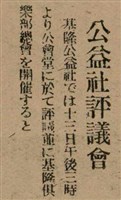 公益社評議會
基隆公益社では十三日午後三時
より公會堂に於て評議並に基隆倶
樂部總會を開催すると